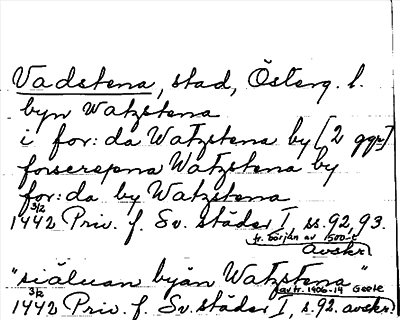 Vadstena, stad, Österg. l.
byn Watzstena
i for:da Watzstena by [2 ggr]
forscrepna Watzstena by
for:da by Watzstena
3/2
1442 Priv. f. Sv. städer I, ss. 92, 93.
fr. början av 1500-t
avskr.
"siäluan byän Watzstena"
3/2 av fr. 1906-19
1442 Priv. f. Sv. städer I, s. 92. avskr.